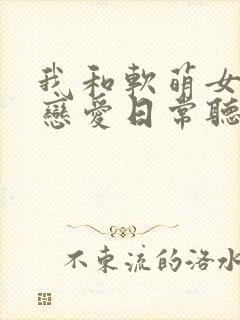 我和軟萌女
戀愛日常聽
不東流的洛水